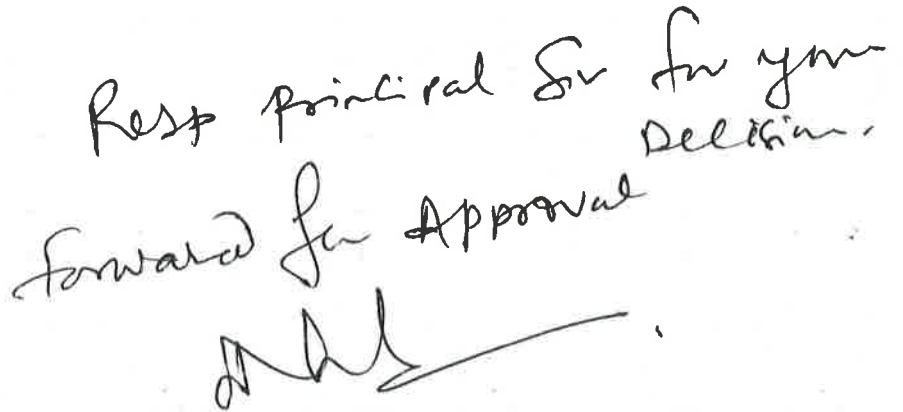 Resp principal Sir for your
Decision.
forward for Approval